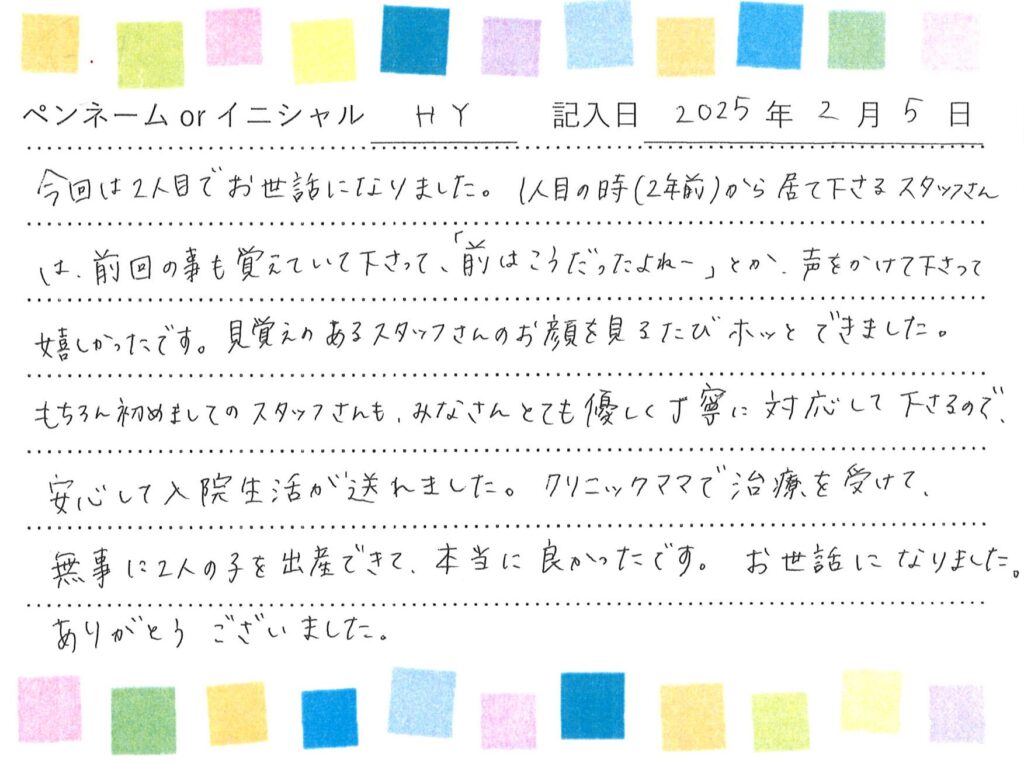 ペンネーム or イニシャル HY 記入日 2025年2月5日
今回は2人目でお世話になりました。1人目の時(2年前)から居て下さるスタッフさん
は、前回の事も覚えていて下さって、「前はこうだったよねー」とか、声をかけて下さって
嬉しかったです。見覚えのあるスタッフさんのお顔を見るたびホッとできました。
もちろん初めましてのスタッフさんも、みなさんとても優しく丁寧に対応して下さるので、
安心して入院生活が送れました。クリニックママで治療を受けて、
無事に2人の子を出産できて、本当に良かったです。お世話になりました。
ありがとうございました。